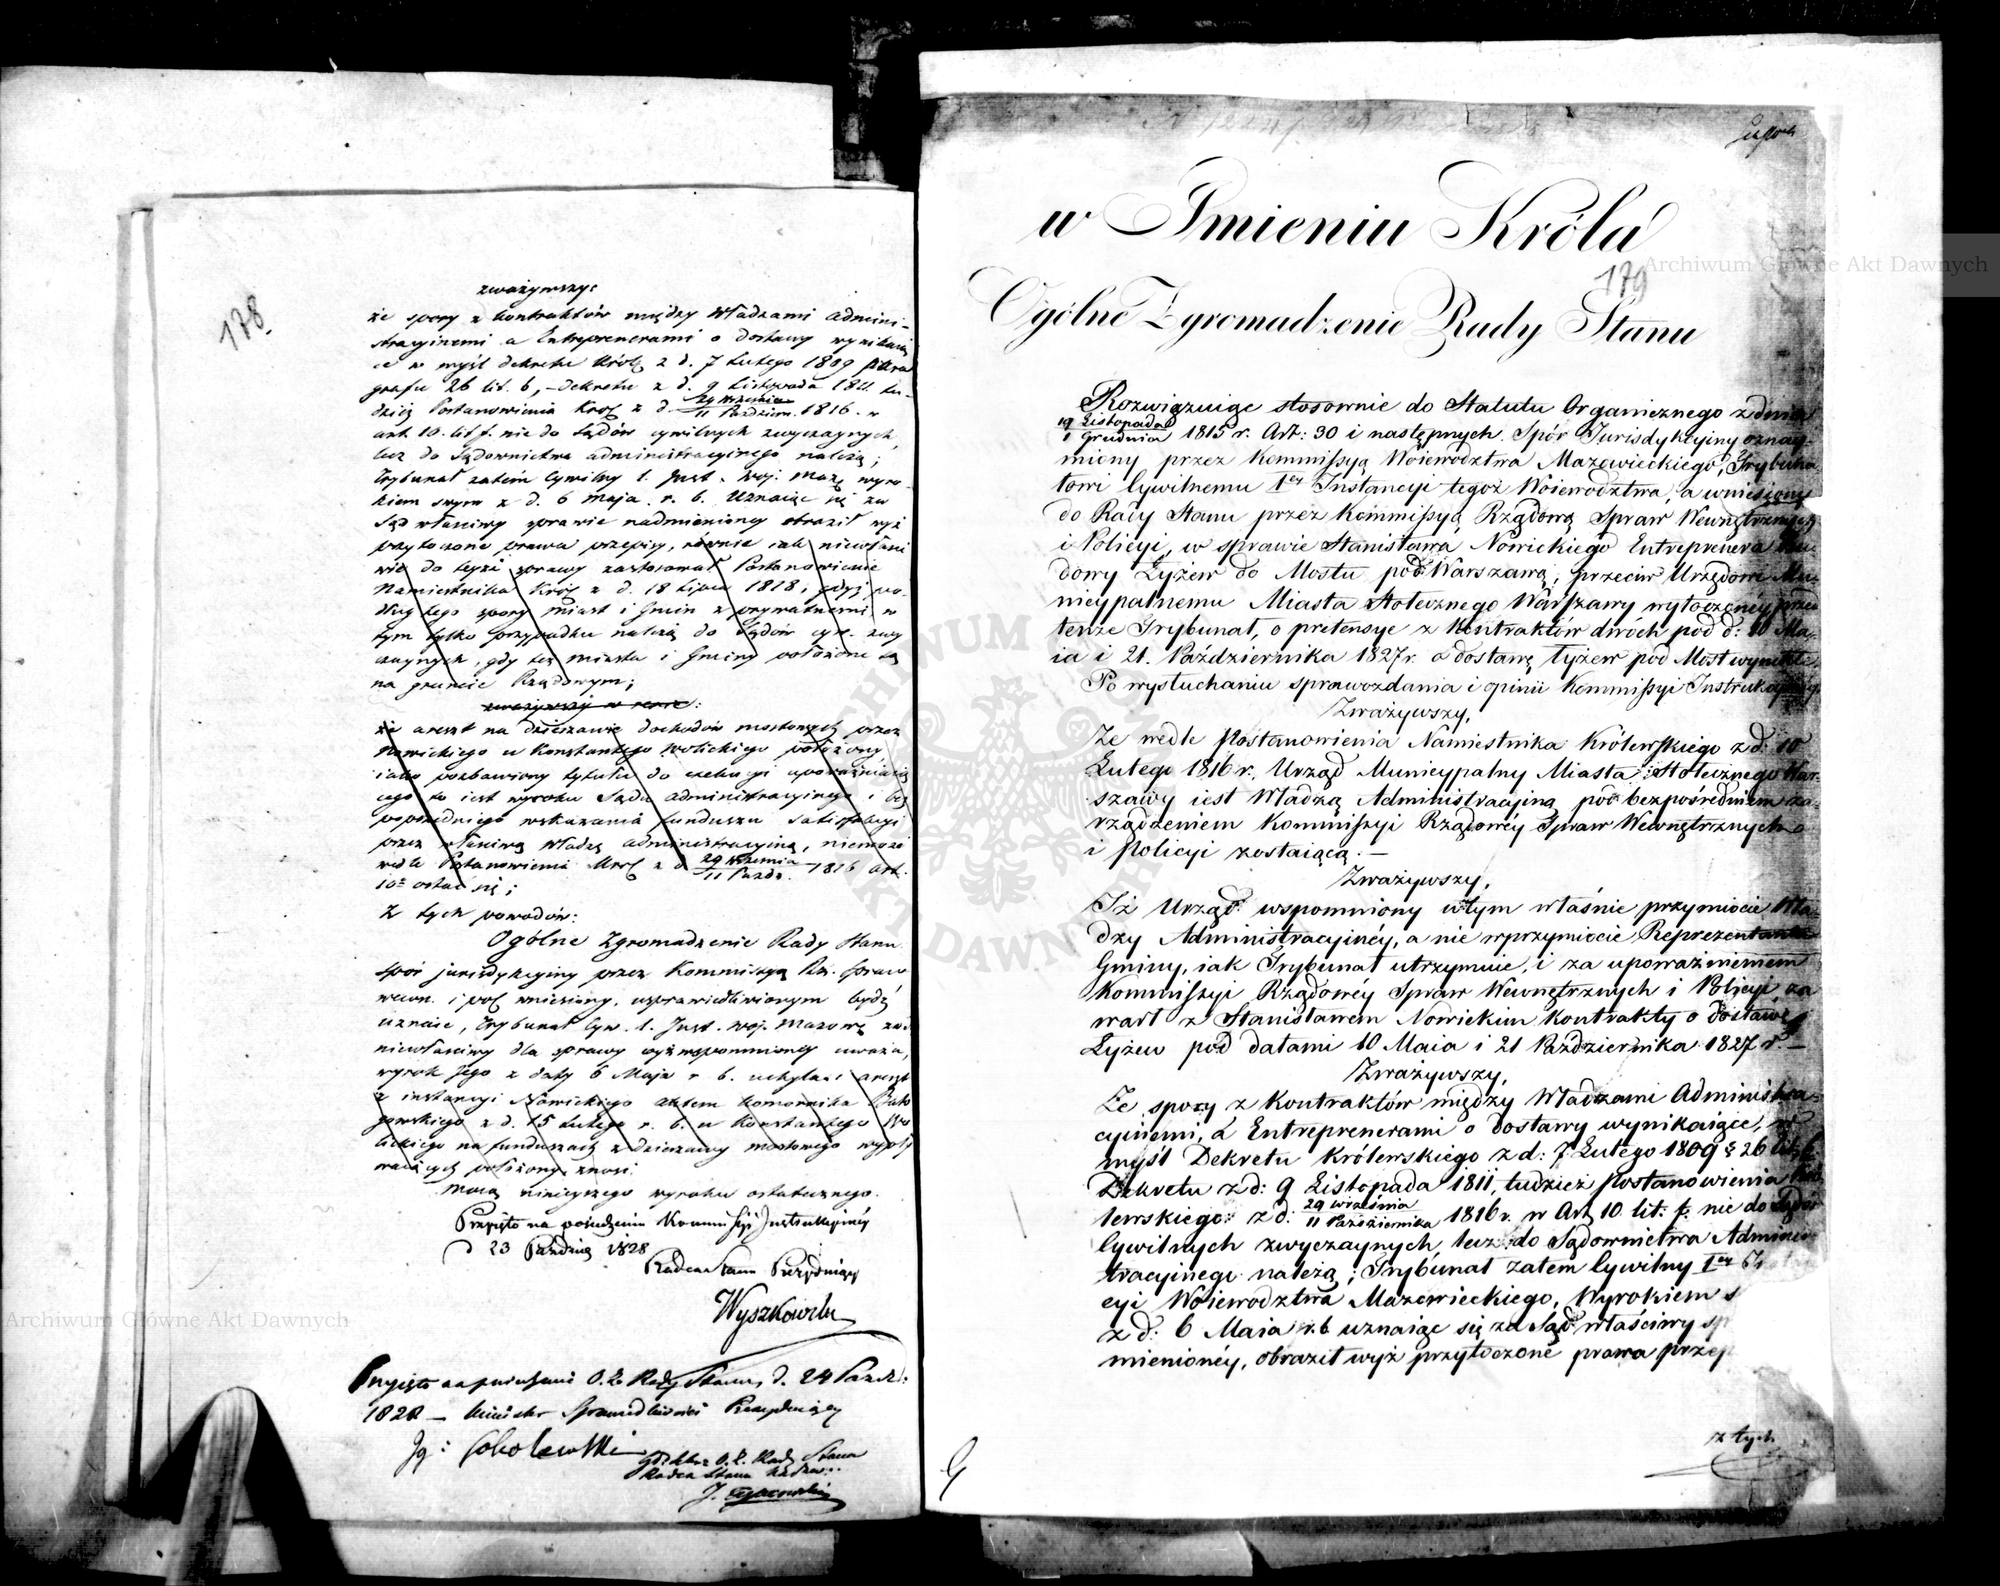 178.
zważywszy:
że spory z kontraktów między Władzami admini-
stracyinemi a Entreprenerami o dostawy wynikaią
ce w myśl dekretu Król. z d. 7 Lutego 1809 para
grafu 26 lit. b, – dekretu z d. 9 Listopada 1811 tu-
dzież Postanowienia Król z d. 29 Września / 11 Paździer. 1816. w
art. 10. lit f. nie do Sądów cywilnych zwyczaynych,
lecz do Sądownictwa administracyinego należą;
Trybunał zatem Cywilny 1. Inst. woj. Maz. wyro-
kiem swym z d. 6 Maja r. b. Uznaiąc się za
Sąd właściwy sprawie nadmienioney obraził wyż
przytoczone prawa przepisy, równie iak niewłaści
wie do teyże sprawy zastosował Postanowienie
Namiestnika Król z d. 18 Lipca 1818, gdyż po-
dług tego spory miast i Gmin z prywatnemi w
tym tylko przypadku należą do Sądów cyw. zwy
czaynych, gdy też miasta i Gminy położone są
na gruncie Rządowym;
zważywszy w reszcie:
że areszt na dzierżawie dochodów mostowych przez
Nowickiego u Konstantego Wolickiego położony
iako pozbawiony tytułu do exekucyi upoważniaią
cego to iest wyroku Sądu administracyinego i bez
poprzedniego wskazania funduszu satisfakcyi
przez właściwą Władzę administracyiną, niemoże
wedle Postanowienia Król z d. 29 Września / 11 Paźdz. 1816 art.
10º ostać się;
Z tych powodów:
Ogólne Zgromadzenie Rady Stanu
spór jurisdykcyiny przez Kommissyą Rz. Spraw
wewn. i pol. wniesiony, usprawiedliwionym bydź
uznaie, Trybunał Cyw. 1. Inst. woj. Mazow. za
niewłaściwy dla sprawy wyżwspomnioney uważa,
wyrok jego z daty 6 Maja r b. uchyla i areszt
z instancyi Nowickiego aktem komornika
gowskiego z d. 15 Lutego r. b. u Konstantego Wo
lickiego na funduszach z dzierżawy mostowego wypły
waiących położony, znosi.
Mocą ninieyszego wyroku ostatecznego.
Przyjęto na posiedzeniu Kommissyi Instrukcyinéy
d 23 Paździer 1828
Radca Stanu Prezyduiący
Wyszkowski
Przyięto na posiedzeniu O. Z. Rady Stanu d. 24 Paźdz.
1828 – Minister Sprawiedliwości Prezyduiący
Ig: Sobolewski
O. Z. Rady Stanu
Radca Stanu
J. Tymowski
w Imieniu Króla
179
Ogólne Zgromadzenie Rady Stanu
Rozwiązuiąc stosownie do Statutu Organicznego z dnia
19 Listopada / 1 Grudnia 1815 r. Art: 30 i następnych. Spór Jurisdykcyiny oznay-
miony przez Kommissyą Woiewodztwa Mazowieckiego, Trybuna
łowi Cywilnemu Iey Instancyi tegoż Woiewodztwa, a wniesiony
do Rady Stanu przez Kommissyą Rządową Spraw Wewnętrznych
i Policyi, w sprawie Stanisława Nowickiego Entreprenera Bu-
dowy Łyżew do Mostu pod Warszawą, przeciw Urzędowi Mu-
nicypalnemu Miasta Stołecznego Warszawy wytoczonéy przed
tenże Trybunał, o pretensye z Kontraktów dwóch pod d: 10 Ma-
ia i 21. Października 1827 r. o dostawę łyżew pod Most wynikłe,
Po wysłuchaniu sprawozdania i opinii Kommissyi Instrukcyinéy.
Zważywszy,
Że wedle Postanowienia Namiestnika Królewskiego z d: 10
Lutego 1816 r., Urząd Municypalny Miasta Stołecznego War-
szawy iest Władzą Administracyiną pod bezpośredniem za-
rządzeniem Kommissyi Rządowéy Spraw Wewnętrznych
i Policyi zostaiącą. –
Zważywszy,
Iż Urząd wspomniony w tym właśnie przymiocie Wła-
dzy Administracyinéy, a nie w przymiocie Reprezentanta
Gminy, iak Trybunał utrzymuie, i za upoważnieniem
Kommissyi Rządowéy Spraw Wewnętrznych i Policyi za
warł z Stanisławem Nowickim Kontrakty o dostawę
Łyżew pod datami 10 Maia i 21 Października 1827 r. –
Zważywszy,
Że spory z Kontraktów między Władzami Administra-
cyinemi, a Entreprenerami o dostawy wynikaiące, w
myśl Dekretu Królewskiego z d: 7 Lutego 1809 § 26 lit: b
Dekretu z d: 9 Listopada 1811, tudzież Postanowienia Kró-
lewskiego z d: 29 Września / 11 Października 1816 r. w Art. 10. lit: f. nie do Sądów
Cywilnych zwyczaynych, lecz do Sądownictwa Adminis-
tracyinego należą; Trybunał zatem Cywilny Iey
cyi Woiewodztwa Mazowieckiego, Wyrokiem s
z d: 6 Maia r. b uznaiąc się za Sąd właściwy sp
mienionéy, obraził wyż przytoczone prawa przep
z tych
Archiwum Główne Akt Dawnych
Archiwum Główne Akt Dawnych